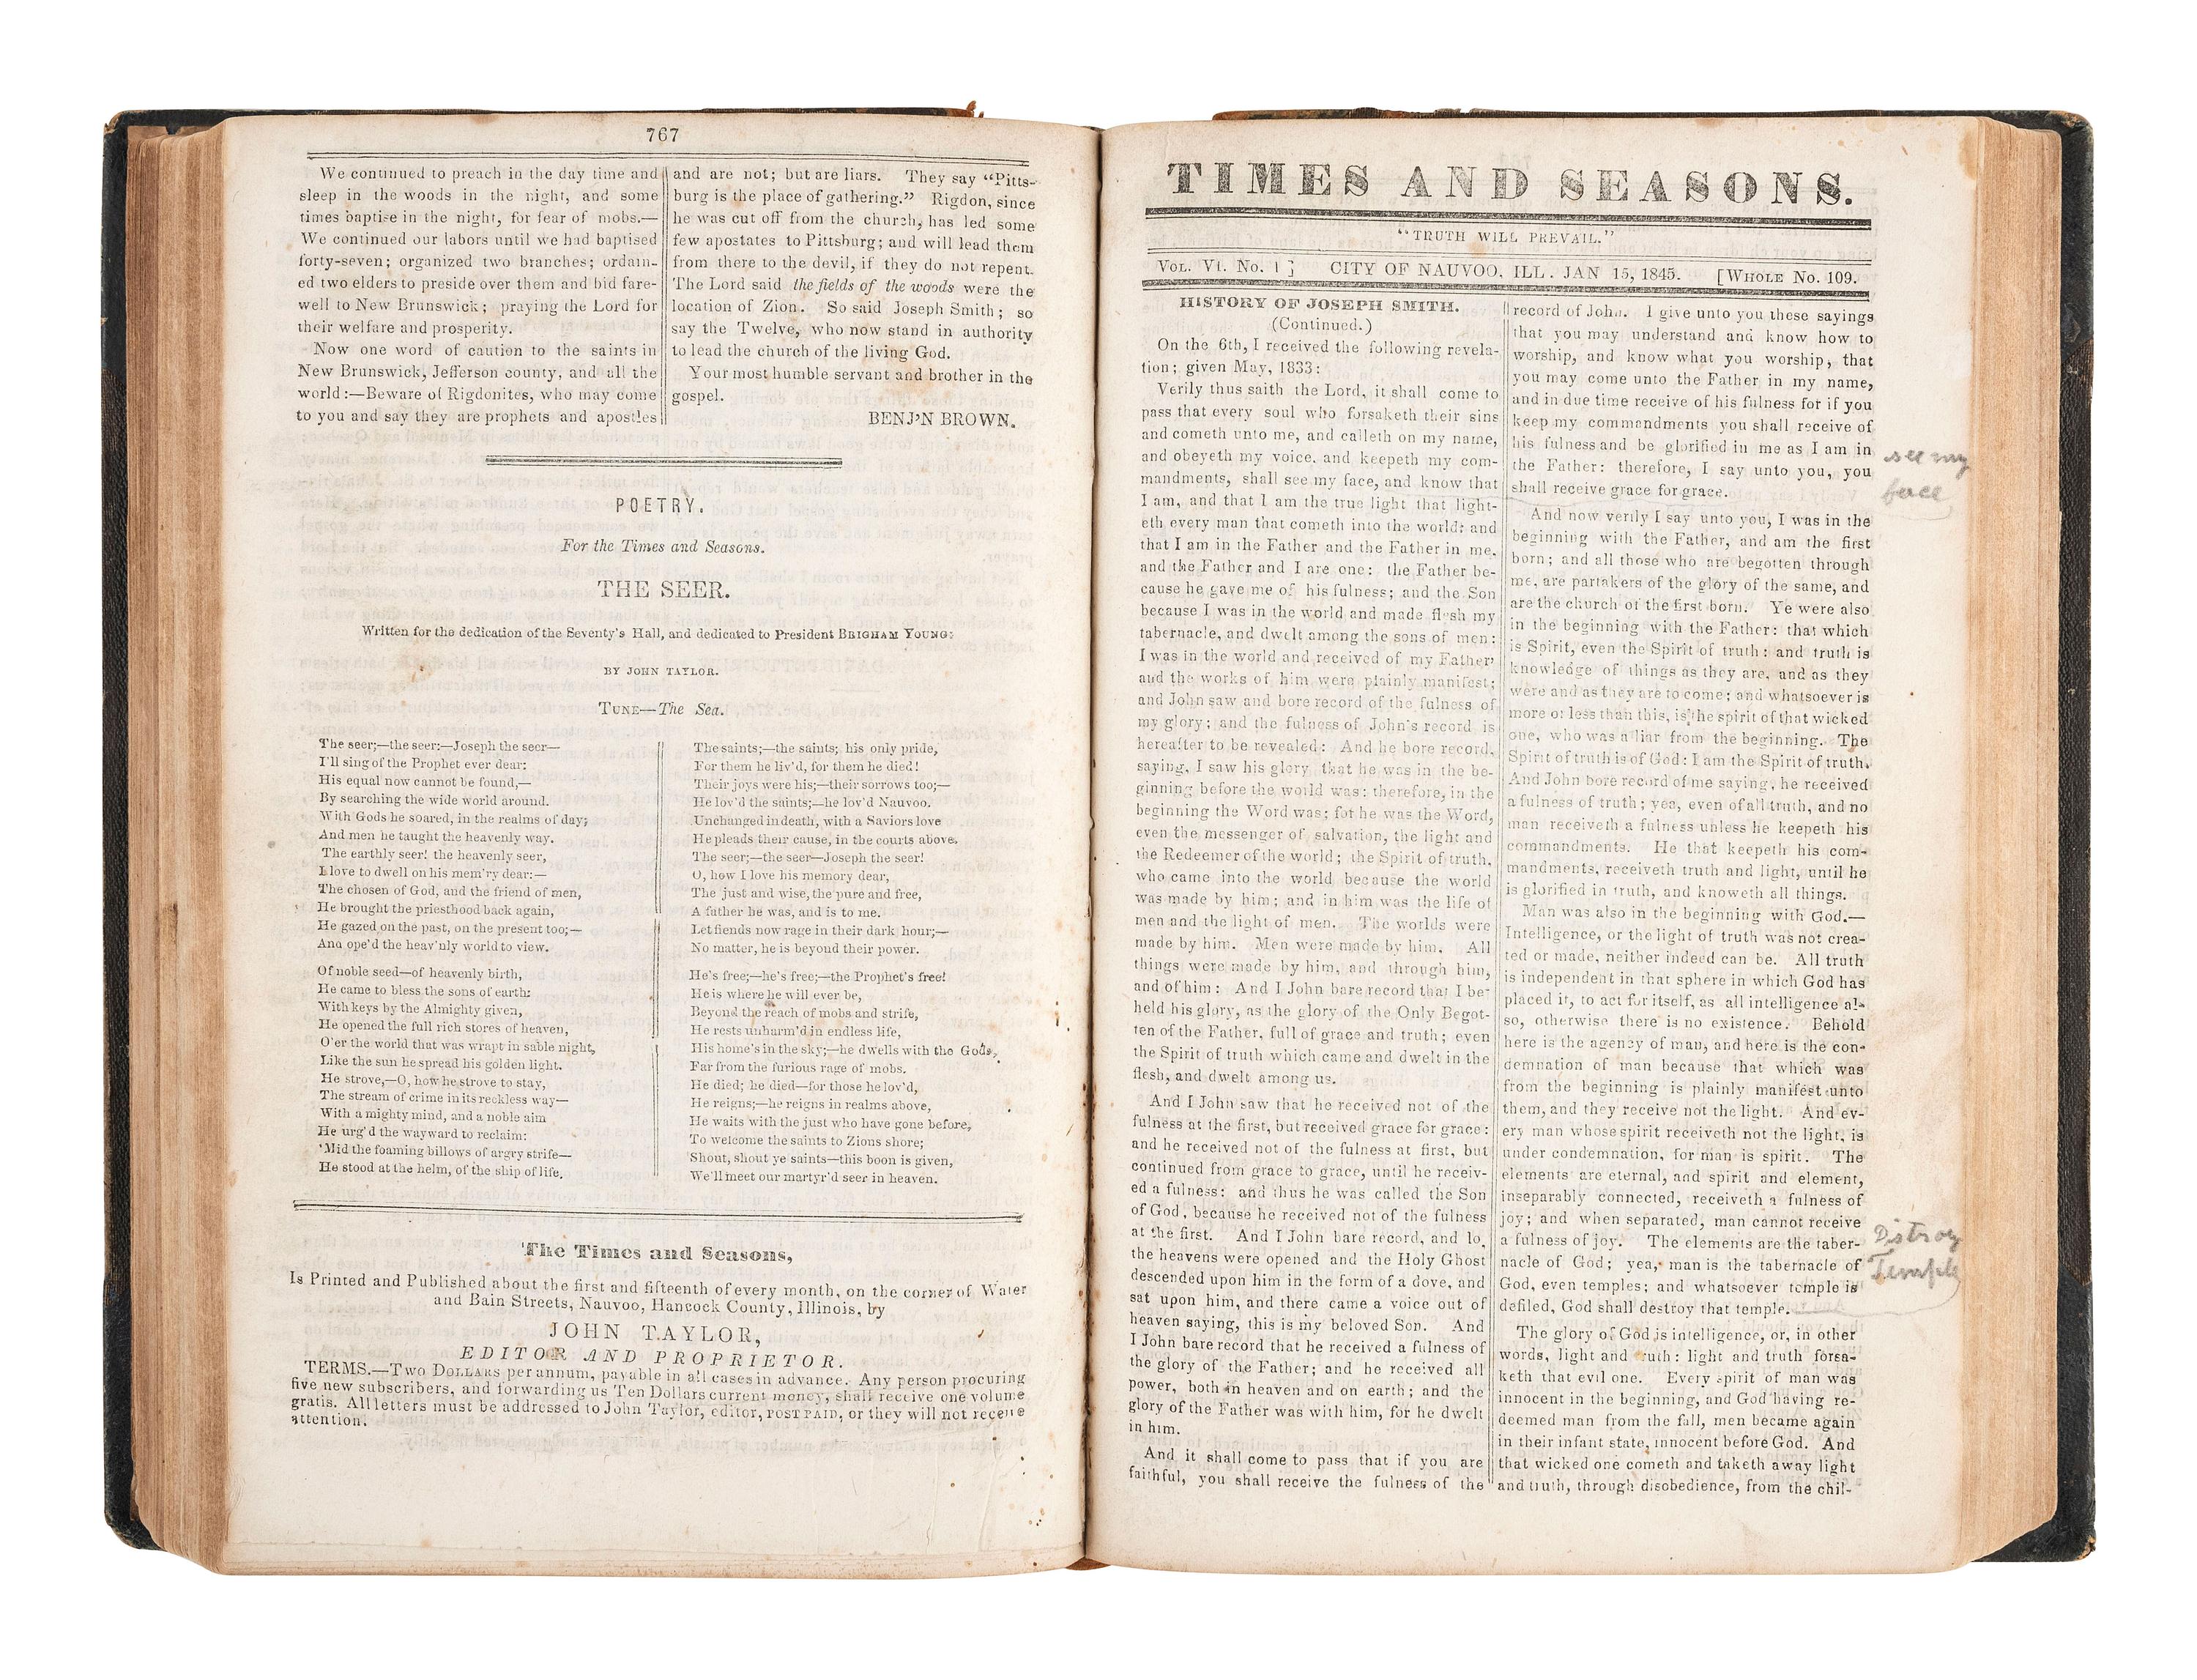 767
We continued to preach in the day time and
sleep in the woods in the night, and some
times baptise in the night, for fear of mobs.—
We continued our labors until we had baptised
forty-seven; organized two branches; ordain-
ed two elders to preside over them and bid fare-
well to New Brunswick; praying the Lord for
their welfare and prosperity.
Now one word of caution to the saints in
New Brunswick, Jefferson county, and all the
world:—Beware of Rigdonites, who may come
to you and say they are prophets and apostles
and are not; but are liars. They say “Pitts-
burg is the place of gathering.” Rigdon, since
he was cut off from the church, has led some
few apostates to Pittsburg; and will lead them
from there to the devil, if they do not repent.
The Lord said the fields of the woods were the
location of Zion. So said Joseph Smith; so
say the Twelve, who now stand in authority
to lead the church of the living God.
Your most humble servant and brother in the
gospel.
BENJ'N BROWN.
POETRY.
For the Times and Seasons.
THE SEER.
Written for the dedication of the Seventy's Hall, and dedicated to President BRIGHAM YOUNG:
BY JOHN TAYLOR.
TUNE—The Sea.
The seer;—the seer:—Joseph the seer—
I'll sing of the Prophet ever dear:
His equal now cannot be found,—
By searching the wide world around.
With Gods he soared, in the realms of day;
And men he taught the heavenly way.
The earthly seer! the heavenly seer,
I love to dwell on his mem'ry dear:—
The chosen of God, and the friend of men,
He brought the priesthood back again,
He gazed on the past, on the present too;—
And ope'd the heav'nly world to view.
Of noble seed—of heavenly birth,
He came to bless the sons of earth:
With keys by the Almighty given,
He opened the full rich stores of heaven,
O'er the world that was wrapt in sable night,
Like the sun he spread his golden light.
He strove,—O, how he strove to stay,
The stream of crime in its reckless way—
With a mighty mind, and a noble aim
He urg'd the wayward to reclaim:
'Mid the foaming billows of argry strife—
He stood at the helm, of the ship of life.
The saints;—the saints; his only pride,
For them he liv'd, for them he died!
Their joys were his;—their sorrows too;—
He lov'd the saints;—he lov'd Nauvoo.
Unchanged in death, with a Saviors love
He pleads their cause, in the courts above.
The seer;—the seer—Joseph the seer!
O, how I love his memory dear,
The just and wise, the pure and free,
A father he was, and is to me.
Let fiends now rage in their dark hour;—
No matter, he is beyond their power.
He's free;—he's free;—the Prophet's free!
He is where he will ever be,
Beyond the reach of mobs and strife,
He rests unharm'd in endless life,
His home's in the sky;—he dwells with the Gods,
Far from the furious rage of mobs.
He died; he died—for those he lov'd,
He reigns;—he reigns in realms above,
He waits with the just who have gone before,
To welcome the saints to Zions shore;
Shout, shout ye saints—this boon is given,
We'll meet our martyr'd seer in heaven.
The Times and Seasons,
Is Printed and Published about the first and fifteenth of every month, on the corner of Water
and Bain Streets, Nauvoo, Hancock County, Illinois, by
JOHN TAYLOR,
EDITOR AND PROPRIETOR.
TERMS.—TWO DOLLARS per annum, payable in all cases in advance. Any person procuring
five new subscribers, and forwarding us Ten Dollars current money, shall receive one volume
gratis. All letters must be addressed to John Taylor, editor, POST PAID, or they will not receive
attention.
TIMES AND SEASONS.
“TRUTH WILL PREVAIL.”
VOL. VI. No. 1] CITY OF NAUVOO, ILL. JAN 15, 1845. [WHOLE No. 109.
HISTORY OF JOSEPH SMITH.
(Continued.)
On the 6th, I received the following revela-
tion; given May, 1833:
Verily thus saith the Lord, it shall come to
pass that every soul who forsaketh their sins
and cometh unto me, and calleth on my name,
and obeyeth my voice, and keepeth my com-
mandments, shall see my face, and know that
I am, and that I am the true light that light-
eth every man that cometh into the world: and
that I am in the Father and the Father in me,
and the Father and I are one: the Father be-
cause he gave me of his fulness; and the Son
because I was in the world and made flesh my
tabernacle, and dwelt among the sons of men:
I was in the world and received of my Father
and the works of him were plainly manifest;
and John saw and bore record of the fulness of
my glory; and the fulness of John's record is
hereafter to be revealed: And he bore record,
saying, I saw his glory that he was in the be-
ginning before the world was: therefore, in the
beginning the Word was; for he was the Word,
even the messenger of salvation, the light and
the Redeemer of the world; the Spirit of truth,
who came into the world because the world
was made by him; and in him was the life of
men and the light of men. The worlds were
made by him. Men were made by him. All
things were made by him, and through him,
and of him: And I John bare record that I be-
held his glory, as the glory of the Only Begot-
ten of the Father, full of grace and truth; even
the Spirit of truth which came and dwelt in the
flesh, and dwelt among us.
And I John saw that he received not of the
fulness at the first, but received grace for grace:
and he received not of the fulness at first, but
continued from grace to grace, until he receiv-
ed a fulness: and thus he was called the Son
of God, because he received not of the fulness
at the first. And I John bare record, and lo,
the heavens were opened and the Holy Ghost
descended upon him in the form of a dove, and
sat upon him, and there came a voice out of
heaven saying, this is my beloved Son. And
I John bare record that he received a fulness of
the glory of the Father; and he received all
power, both in heaven and on earth; and the
glory of the Father was with him, for he dwelt
in him.
And it shall come to pass that if you are
faithful, you shall receive the fulness of the
record of John. I give unto you these sayings
that you may understand and know how to
worship, and know what you worship, that
you may come unto the Father in my name,
and in due time receive of his fulness for if you
keep my commandments you shall receive of
his fulness and be glorified in me as I am in
the Father: therefore, I say unto you, you
shall receive grace for grace.
And now verily I say unto you, I was in the
beginning with the Father, and am the first
born; and all those who are begotten through
me, are partakers of the glory of the same, and
are the church of the first born. Ye were also
in the beginning with the Father: that which
is Spirit, even the Spirit of truth: and truth is
knowledge of things as they are, and as they
were and as they are to come; and whatsoever is
more or less than this, is the spirit of that wicked
one, who was a liar from the beginning. The
Spirit of truth is of God: I am the Spirit of truth.
And John bore record of me saying, he received
a fulness of truth; yea, even of all truth, and no
man receiveth a fulness unless he keepeth his
commandments. He that keepeth his com-
mandments, receiveth truth and light, until he
is glorified in truth, and knoweth all things.
Man was also in the beginning with God.—
Intelligence, or the light of truth was not crea-
ted or made, neither indeed can be. All truth
is independent in that sphere in which God has
placed it, to act for itself, as all intelligence al-
so, otherwise there is no existence. Behold
here is the agency of man, and here is the con-
demnation of man because that which was
from the beginning is plainly manifest unto
them, and they receive not the light. And ev-
ery man whose spirit receiveth not the light, is
under condemnation, for man is spirit. The
elements are eternal, and spirit and element,
inseparably connected, receiveth a fulness of
joy; and when separated, man cannot receive
a fulness of joy. The elements are the taber-
nacle of God; yea, man is the tabernacle of
God, even temples; and whatsoever temple is
defiled, God shall destroy that temple.
The glory of God is intelligence, or, in other
words, light and truth: light and truth forsa-
keth that evil one. Every spirit of man was
innocent in the beginning, and God having re-
deemed man from the fall, men became again
in their infant state, innocent before God. And
that wicked one cometh and taketh away light
and truth, through disobedience, from the chil-
see my
face
Distroy
Temple